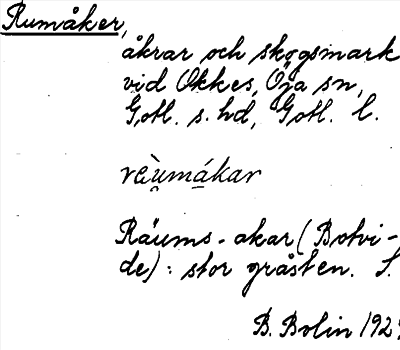 Rumåker,
åkrar och skogsmark
vid Okkes, Öja sn,
Gotl. s. hd, Gotl. l.
ræ̀u̯mákar
Räums-akar (Botvi-
de): stor gråsten. S.
B. Bolin 192